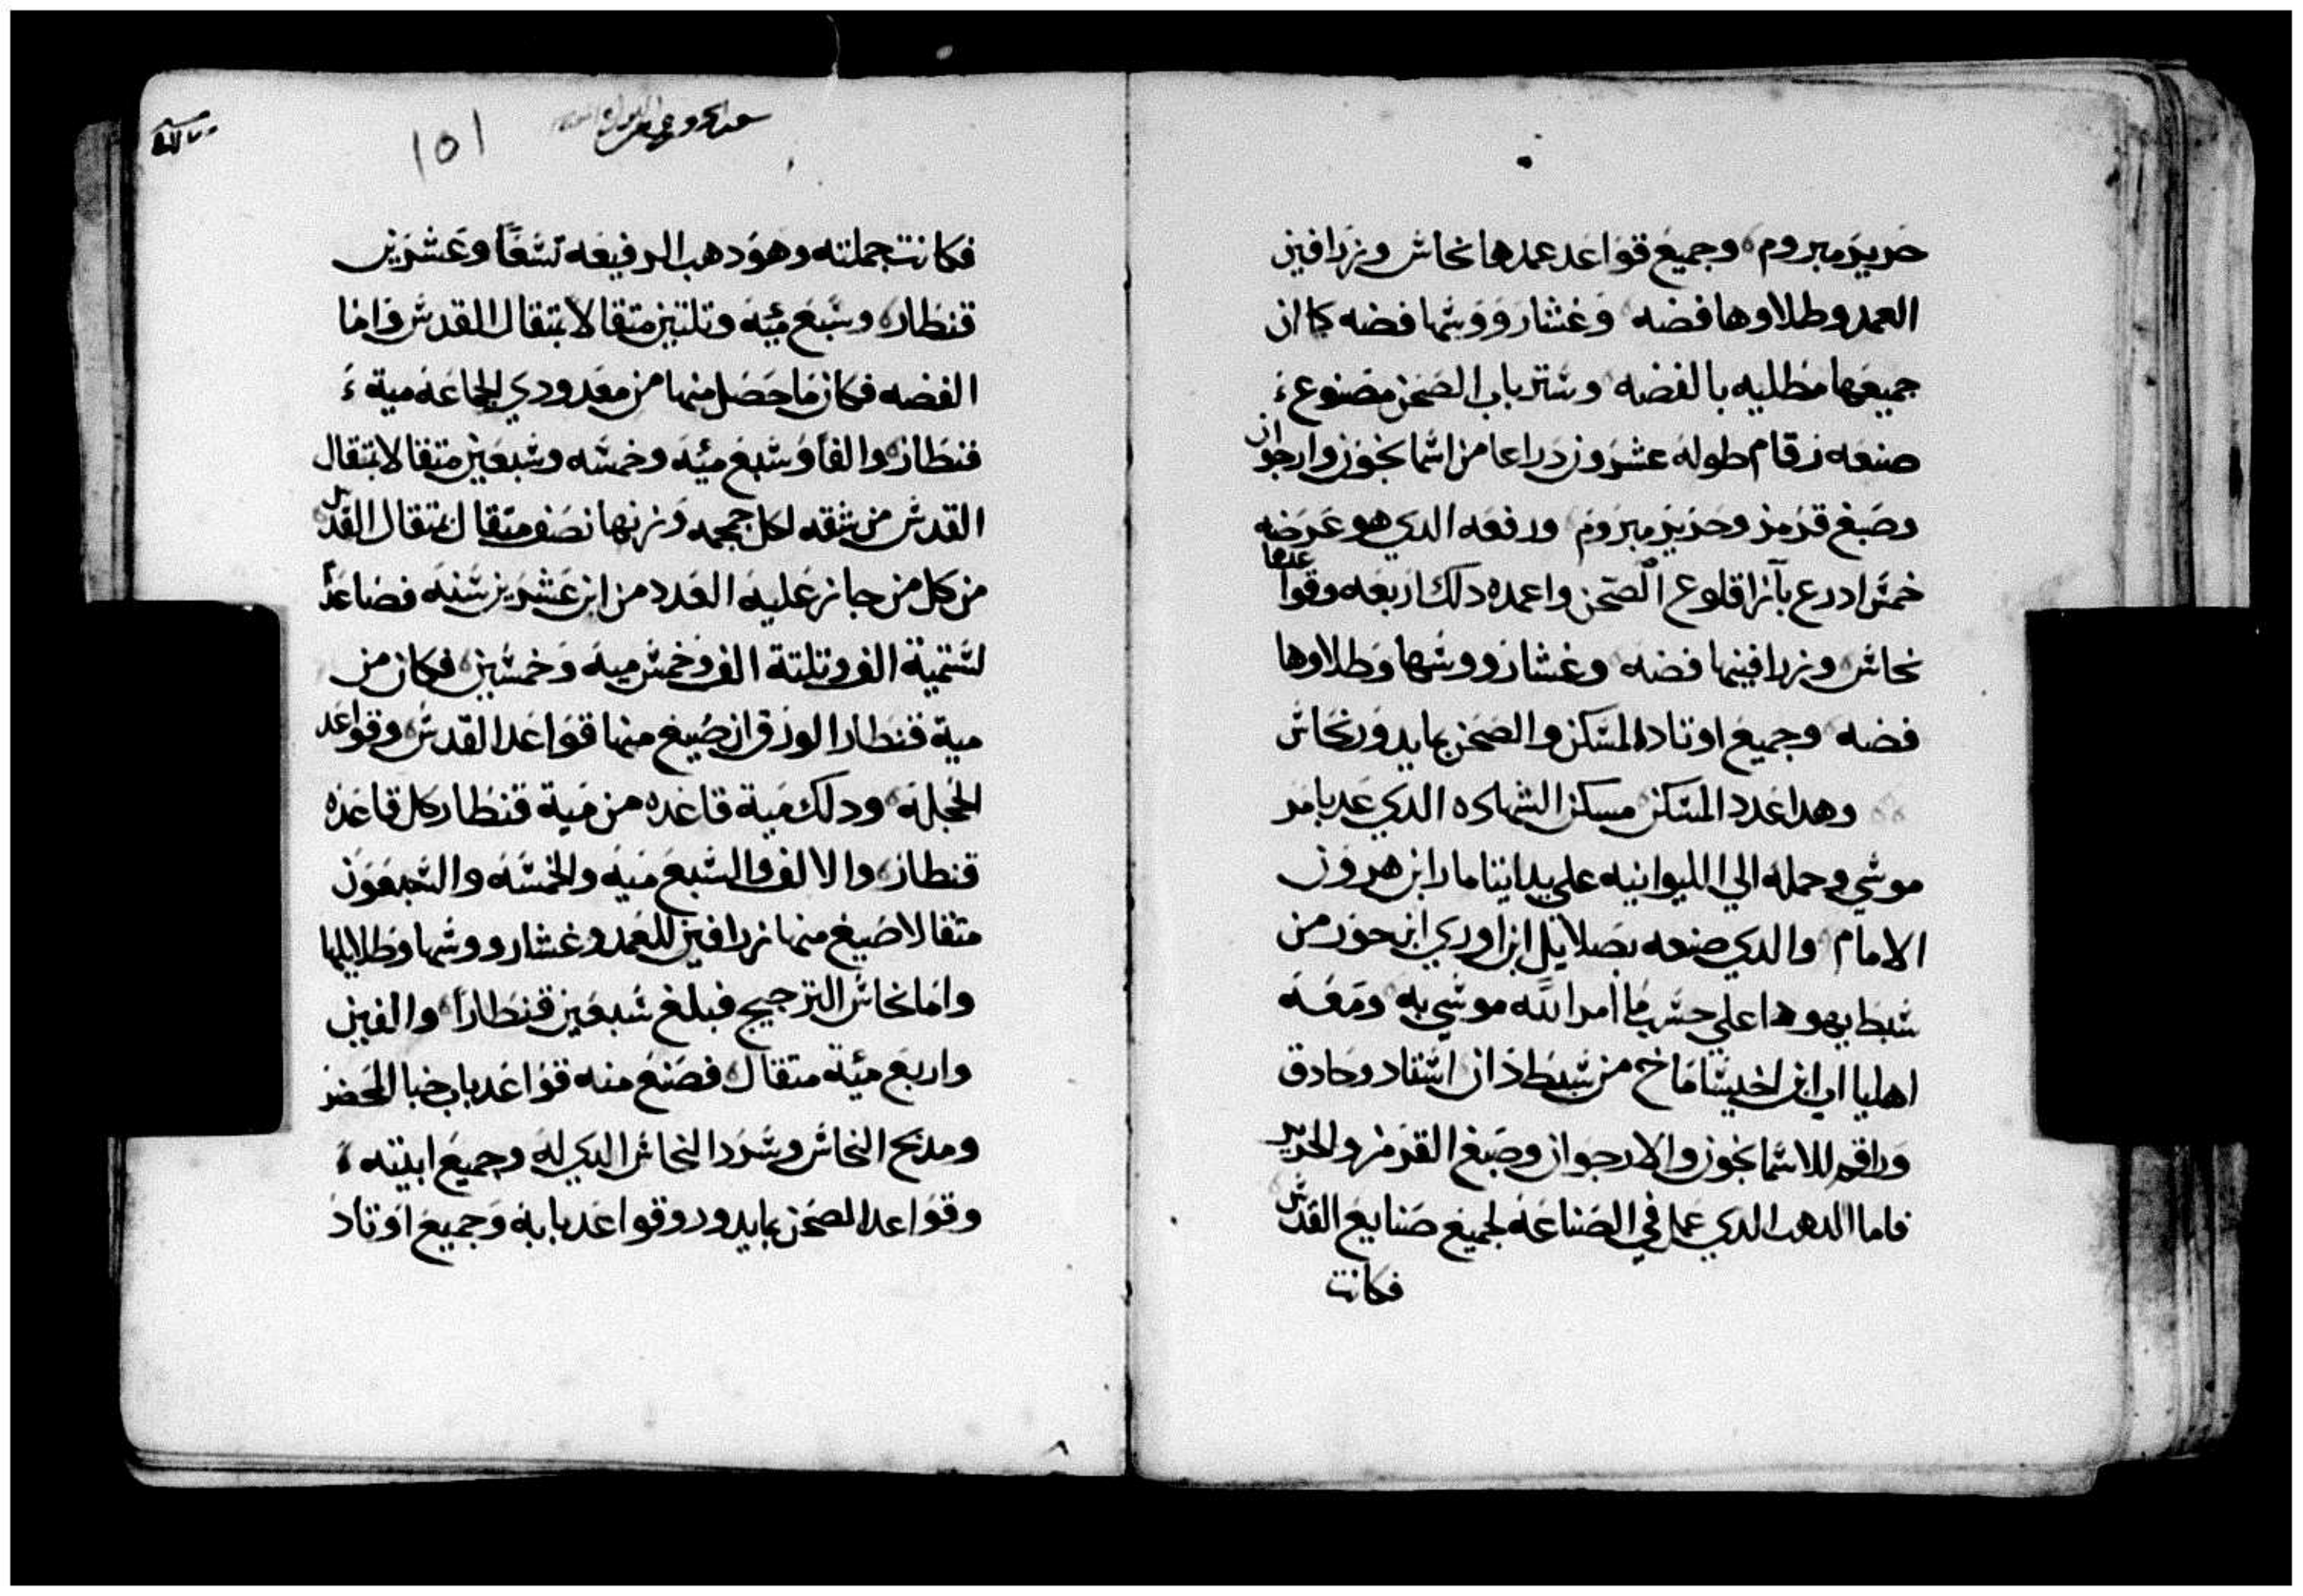 حرير مبروم وجميع قواعد عمدها نحاش وزرافين
العمد وطلاوها فضه وغشار ووشها فضه كما ان
جميعها مطليه بالفضه وستر باب الصحن مصنوع
صنعه رقام طوله عشرون دراعا من اسمانجون وارجوان
وصبغ قرمز وحرير مبروم ورفعه الدي هو عرضه
خمس ادرع بآزا قلوع الصحن واعمده دلك اربعه وقواعدها
نحاش وزرافينها فضه وغشار ووشها وطلاوها
فضه وجميع اوتاد المسكن والصحن بما يدور نحاش
وهدا عدد المسكن مسكن الشهاده الدي عد بامر
موسي وحمله الي الليوانيه علي يد ايتامار ابن هرون
الامام والدي صنعه بصلايل ابن اوري ابن حور من
شبط يهودا علي حسب ما امر الله موسي به ومعه
اهلياب ابن اخيساماخ من شبط دان استاد وحادق
وراقم للاسمانجون والارجوان وصبغ القرمز والحرير
فاما الدهب الدي عمل في الصناعه لجميع صنايع القدس
فكانت
101
فكانت جملته وهو دهب الرفيعه تسعا وعشرين
قنطار وسبع مئيه وتلتين متقالا بمتقال القدس واما
الفضه فكان ما حصل منها من معدودي الجماعه مية
قنطار والفا وسبع مئيه وخمسه وسبعين متقالا بمتقال
القدس من شقه لكل جمجمه وزنها نصف متقال بمتقال القدس
من كل من جاز عليه العدد من ابن عشرين سنه فصاعدا
لستمية الف وتلتة الف وخمس ميه وخمسين فكان من
مية قنطار الورق ان صيغ منها قواعد القدس وقواعد
الحجله ودلك مية قاعده من مية قنطار كل قاعده
قنطار والالف والسبع ميه والخمسه والسبعون
متقالا صيغ منها زرافين للعمد وغشار ووشها وطلايلها
واما نحاش الترجيح فبلغ سبعين قنطارا والفين
واربع مئة متقال فصنع منه قواعد باب خبا المحضر
ومدبح النحاش وسرد النحاش الدي له وجميع ابنيته
وقواعد الصحن بما يدور وقواعد بابه وجميع اوتاد